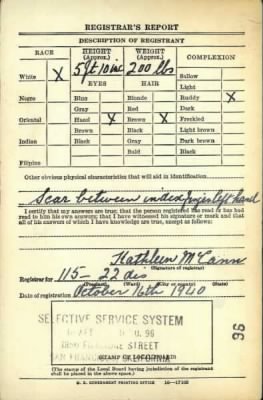 REGISTRAR'S REPORT
DESCRIPTION OF REGISTRANT
RACE HEIGHT (Approx.) WEIGHT (Approx.) COMPLEXION
White X 5 ft 10 in 200 lbs Sallow
EYES HAIR Light
Negro Blue Blonde Ruddy X
Gray Red Dark
Oriental Hazel X Brown X Freckled
Brown Black Light brown
Indian Black Gray Dark brown
Bald Black
Filipino
Other obvious physical characteristics that will aid in identification
Scar between index finger left hand
I certify that my answers are true; that the person registered has read or has had
read to him his own answers; that I have witnessed his signature or mark and that
all of his answers of which I have knowledge are true, except as follows:
Kathleen McCann
(Signature of registrar)
Registrar for 115 - 22 des
(Precinct) (Ward) (City or county) (State)
Date of registration October 16th 1940
SELECTIVE SERVICE SYSTEM
STREET
SAN FRANCISCO CALIFORNIA
STAMP OF LOCAL BOARD
96
(The stamp of the Local Board having jurisdiction of the registrant
shall be placed in the above space.)
U. S. GOVERNMENT PRINTING OFFICE 16—17105